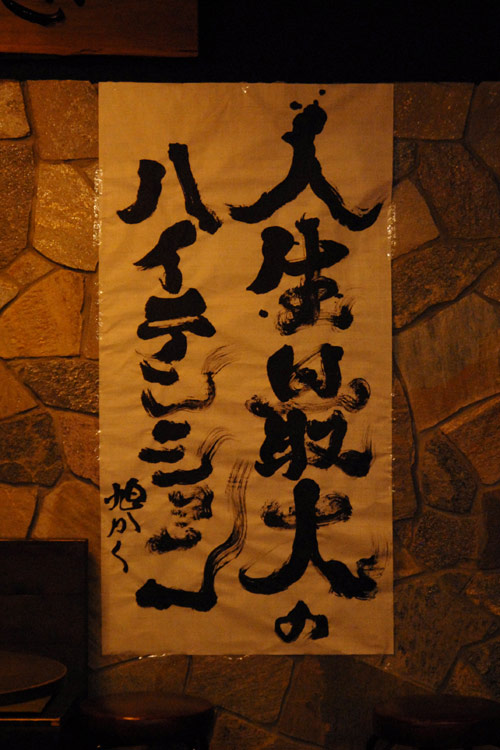 人生最大の
ハイテンション
旭かく